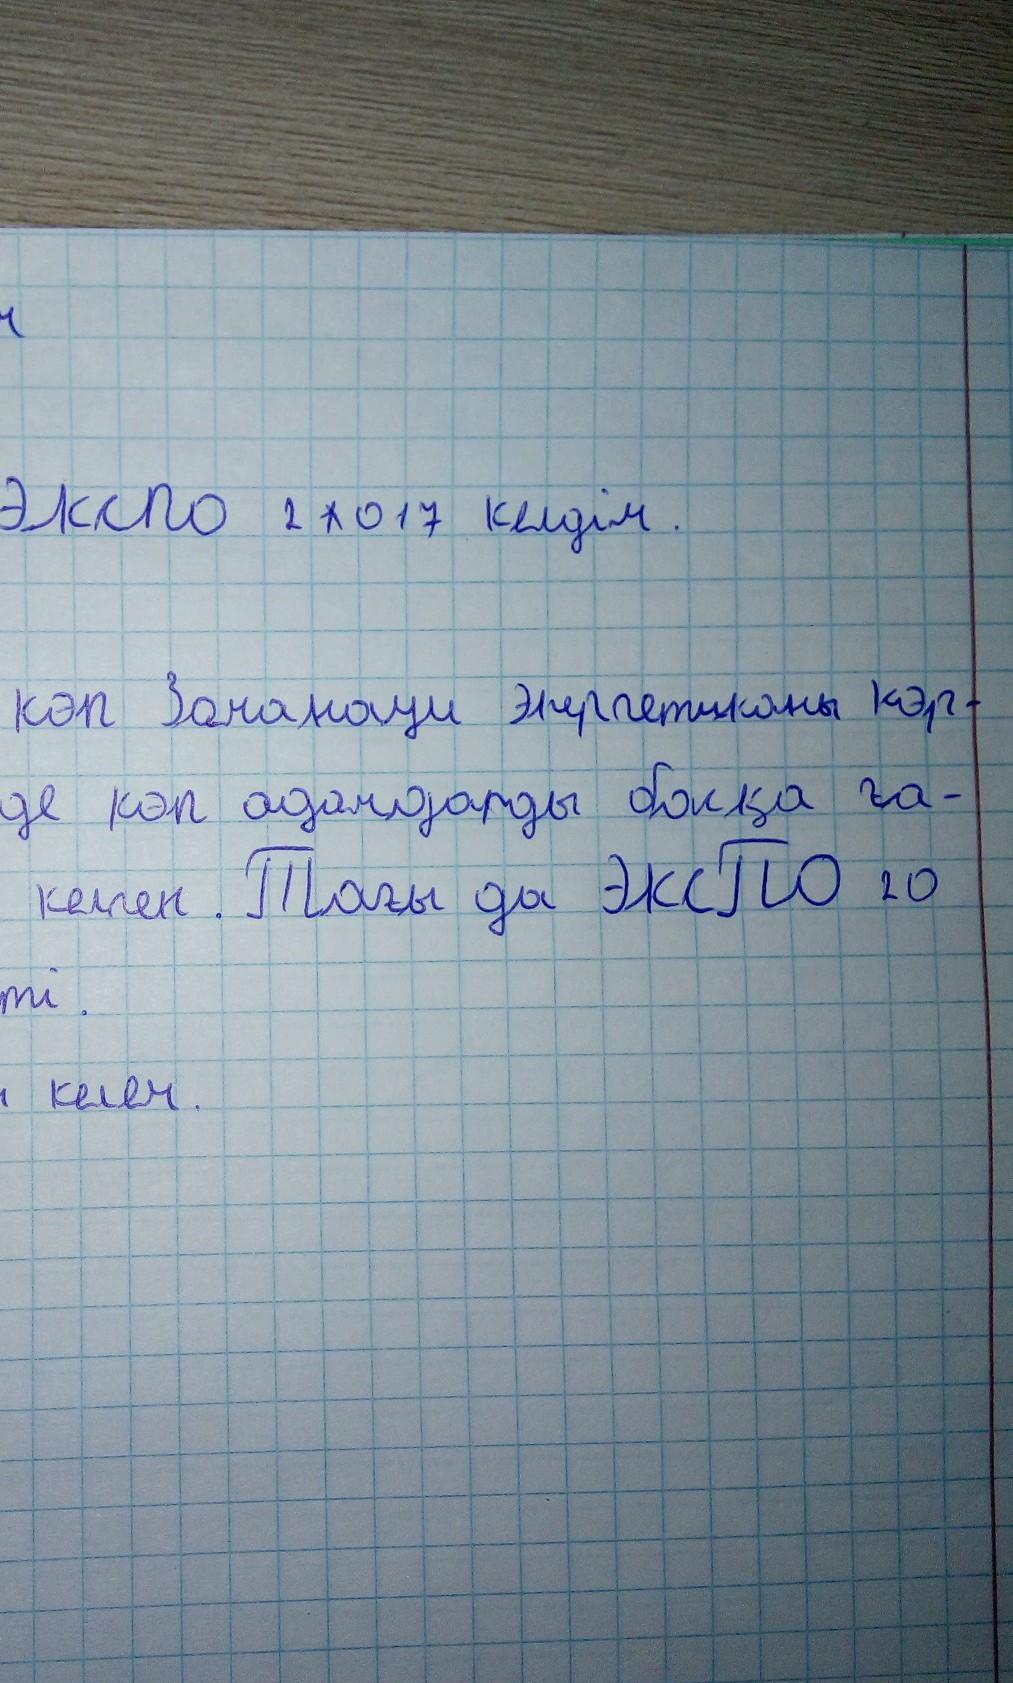 ЭКСПО 2017 келдім.
кэп Заманауи энергетиканы кэр-
де кэп адамдарды басқа ға-
келген. Тағы да ЭКСПО 20
ті.
келем.